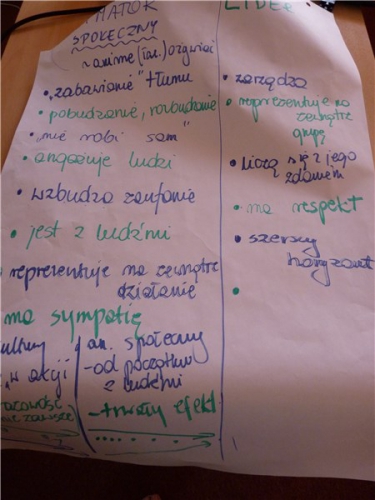 MATOR
SPOŁECZNY
z anime (łac.) ożywiać
• „zabawianie" tłumu
• pobudzanie, rozbudzanie
• „nie robi sam"
• angażuje ludzi
• wzbudza zaufanie
• jest z ludźmi
reprezentuje na zewnątrz
działanie
ma sympatię
w akcji
an. społeczny
- od początku
z ludźmi
- trwały efekt
LIDER
• zarządza
• reprezentuje na
zewnątrz
grupę
• liczą się z jego
zdaniem
• ma respekt
• szerszy
horyzont
•